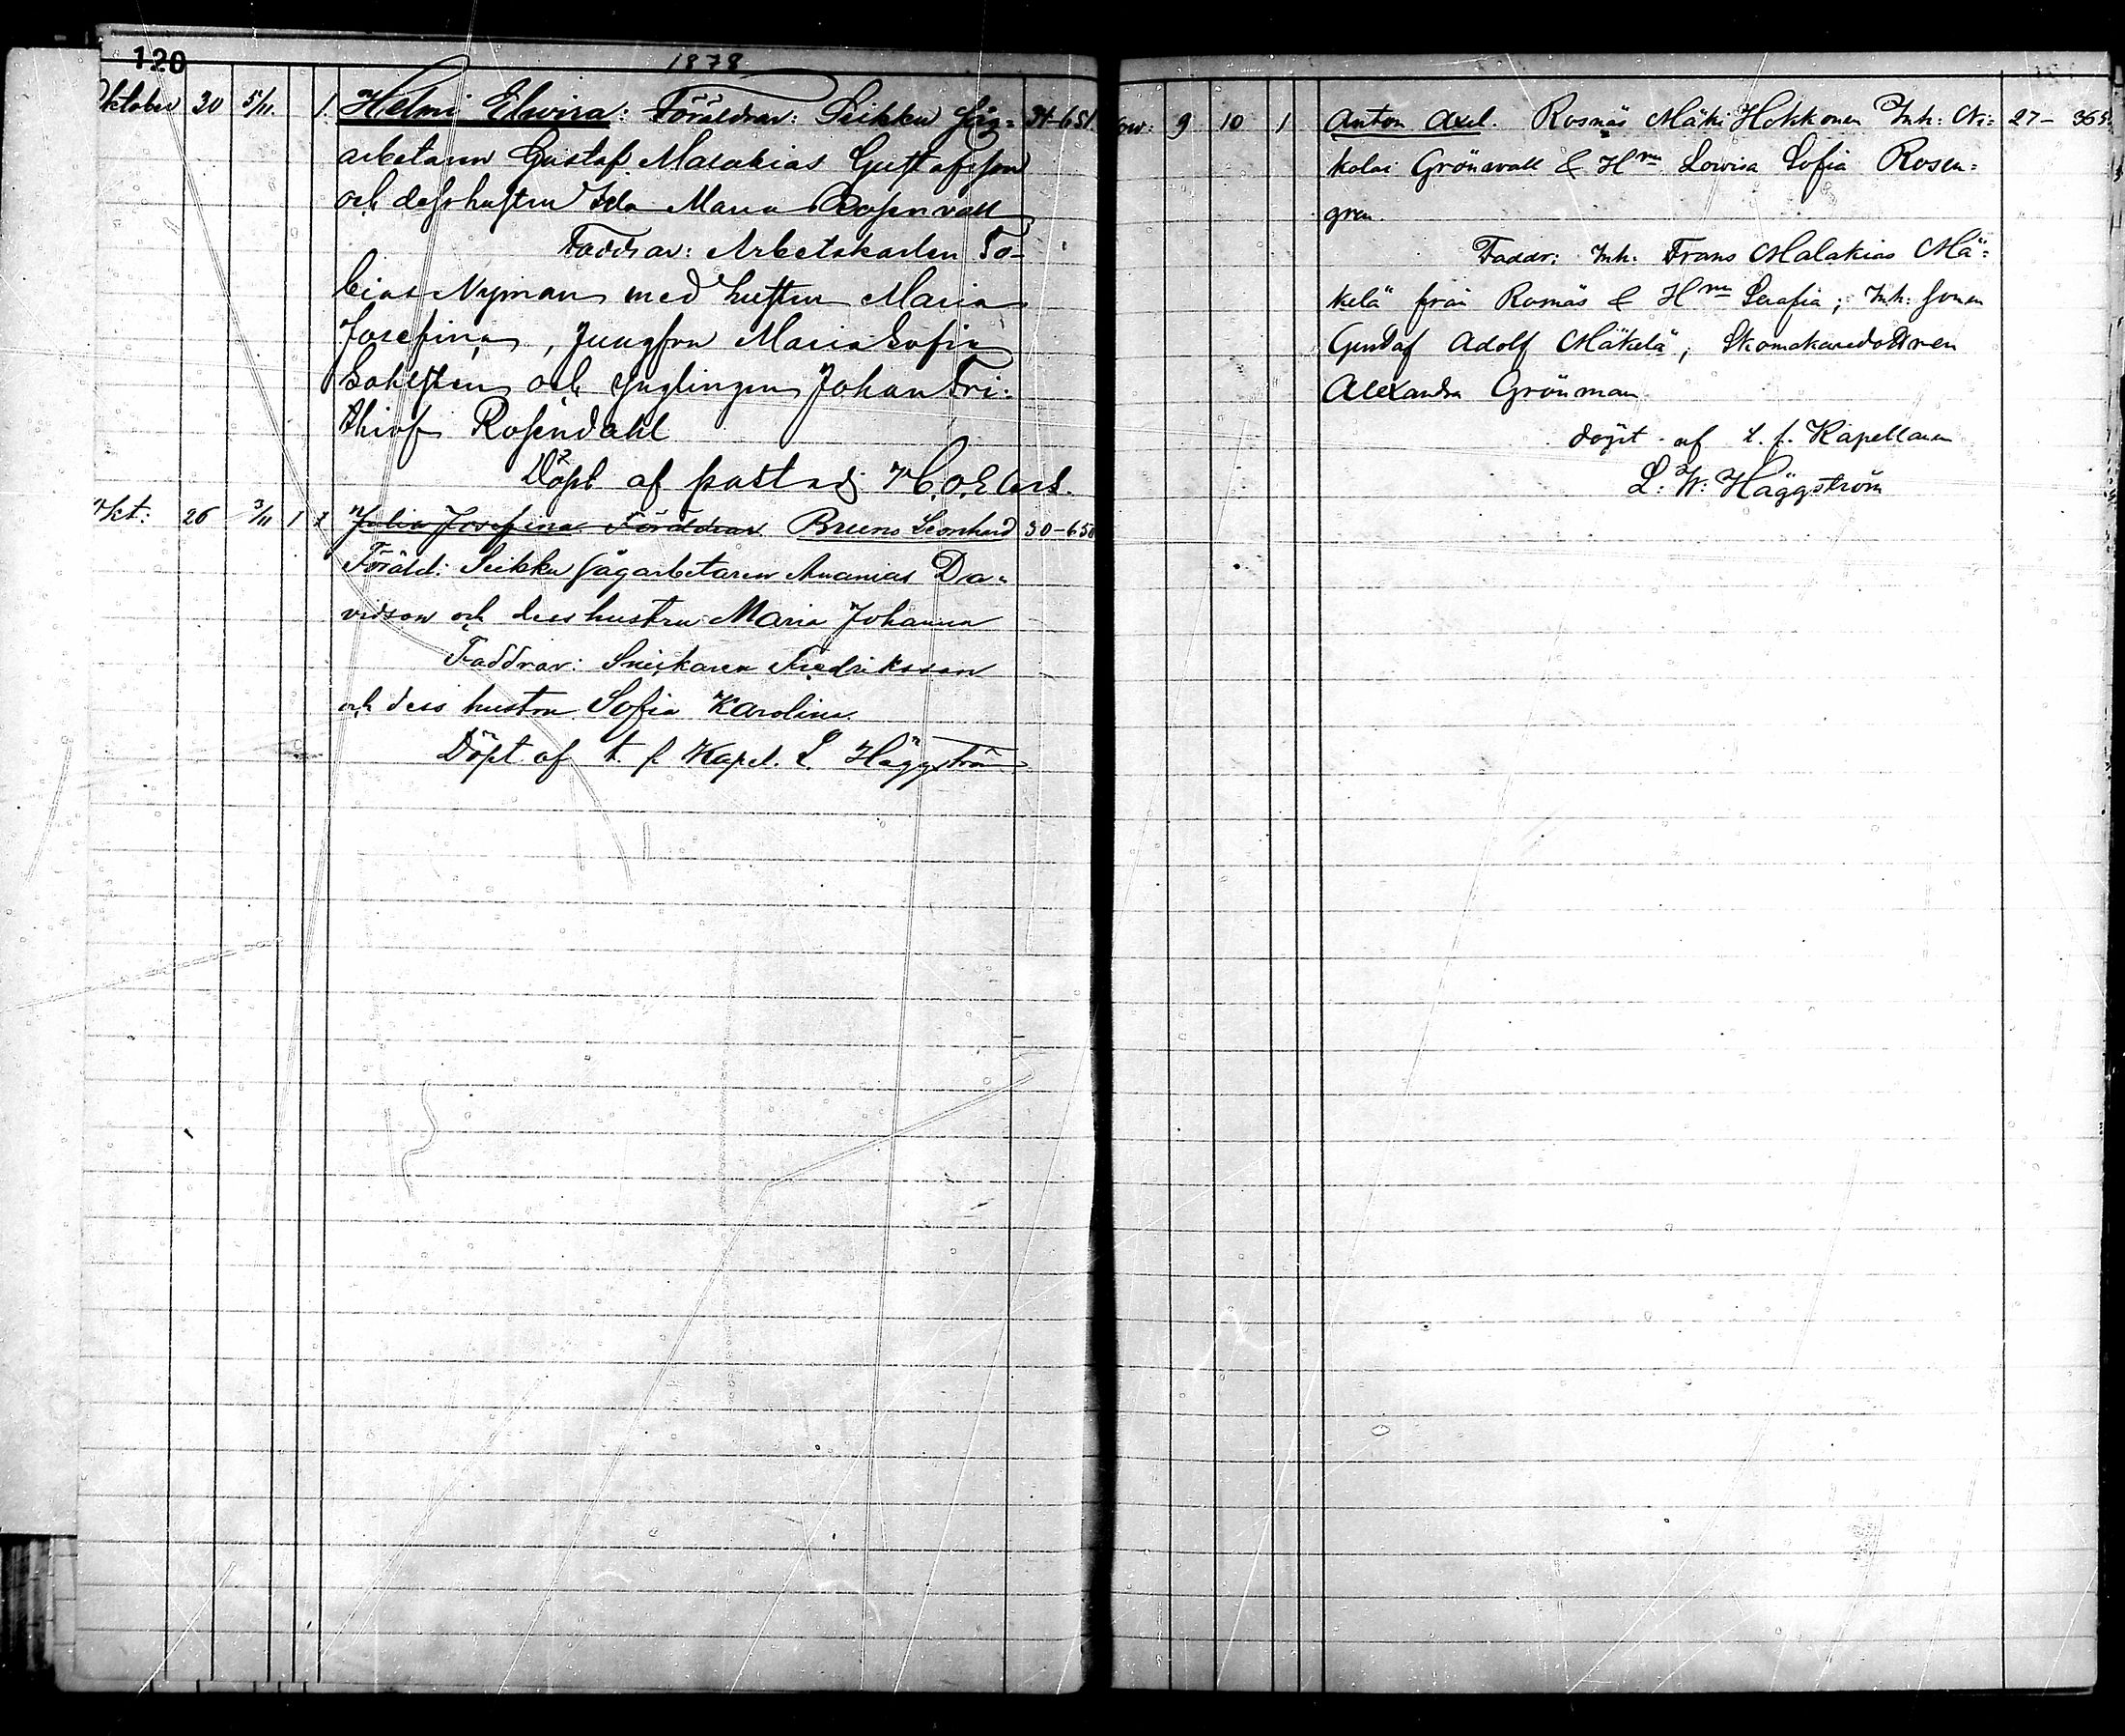 120
1878
Oktober 20 5/11. 1. Helmi Elwira: Föräldrar: Seikku Såg= 34-651
arbetaren Gustaf Malakias Gustafsson
och dess hustru Ida Maria Rosenvall
Faddrar: Arbetskarlen To-
bias Nyman med hustru Maria
Josefina, Jungfru Maria Sofia
Sahlsten och Ynglingen Johan Fri-
thiof Rosendahl
Döpt af past adj
Okt: 26 3/11 1 1 Julia Josefina Föräldrar Bruno Leonhard 30-650
Föräld: Seikku sågarbetaren Ananias Da-
vidson och dess hustru Maria Johanna
Faddrar: Snickaren Fredriksson
och dess hustru Sofia Karolina.
Döpt af t. f Kapel. L. Häggström
Nov: 9 10 1 Anton Axel. Rosnäs Mäki Hokkonen Inh: Ni= 27- 365
kolai Grönwall & Hru Lovisa Sofia Rosen=
gren.
Faddr: Inh: Frans Malakias Mä=
kelä från Rosnäs & Hru Serafia; Inh: sonen
Gustaf Adolf Mäkelä, Skomakaredottren
Alexandra Grönman
döpt af t. f. Kapellanen
L. W: Häggström